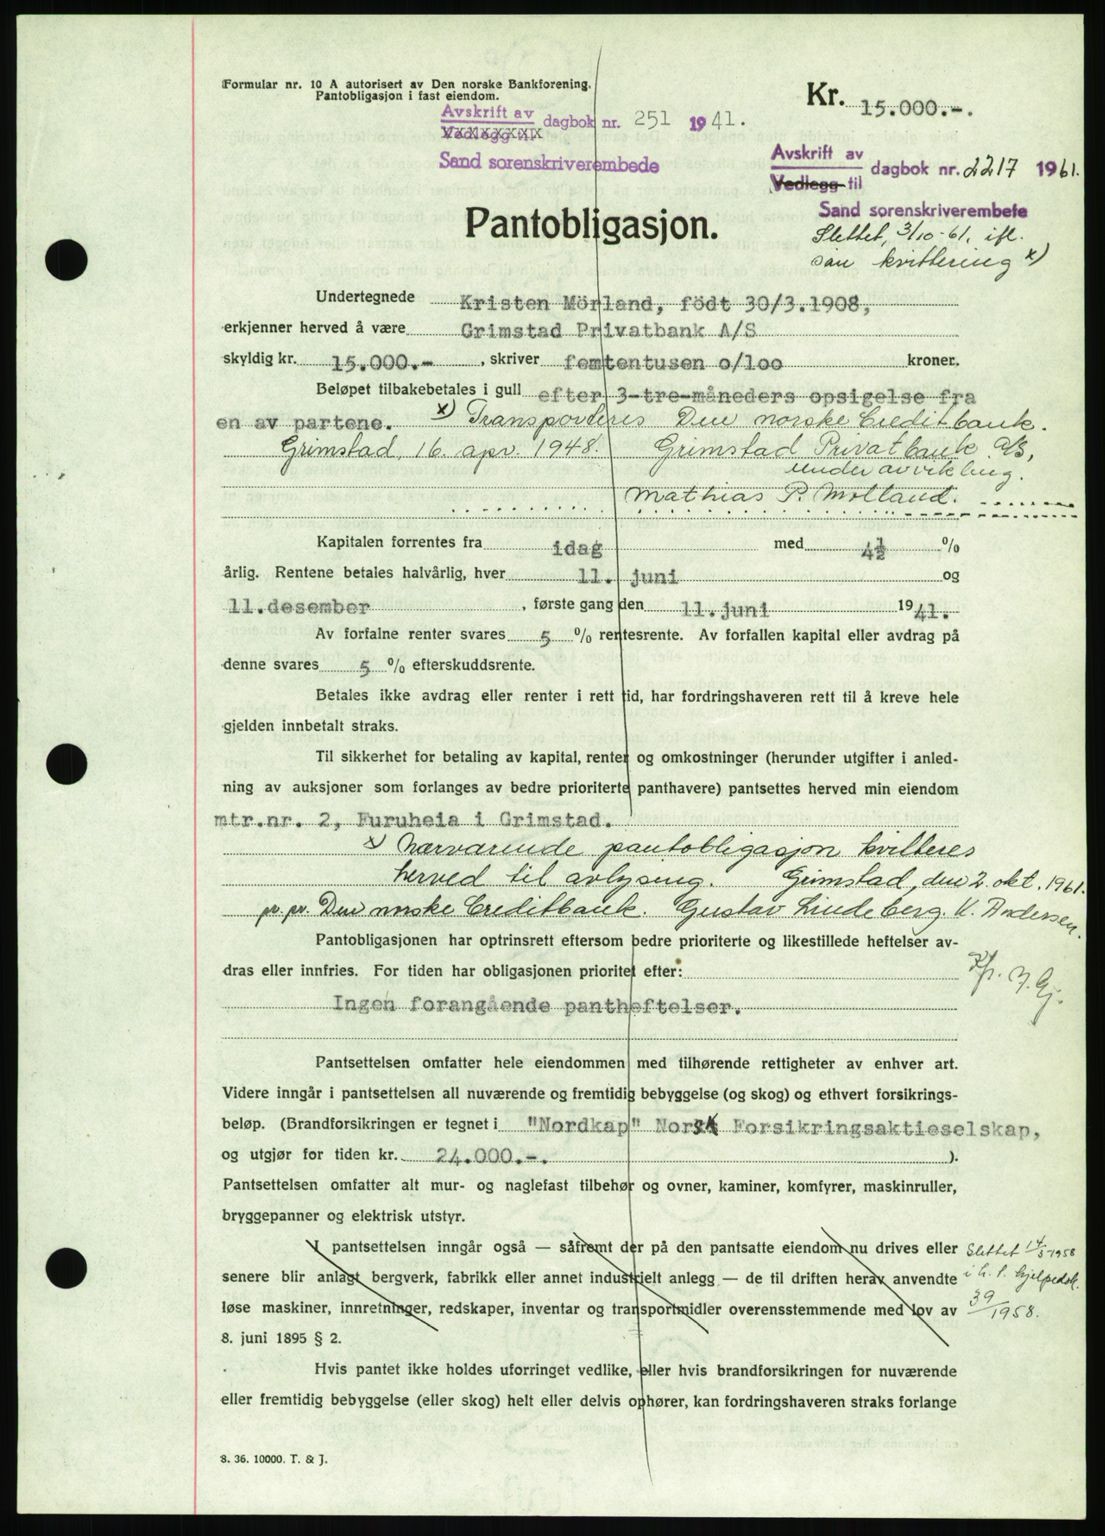 Formular nr. 10 A autorisert av Den norske Bankforening.
Pantobligasjon i fast eiendom.
Kr. 15.000.-.
Avskrift av
Vedlegg til dagbok nr. 251 1941.
Sand sorenskriverembede
Avskrift av
Vedlegg til dagbok nr. 2217 1961.
Sand sorenskriverembete
Slettet, 3/10-61, ifl.
sån kvittering x)
Pantobligasjon.
Undertegnede Kristen Mörland, födt 30/3.1908,
erkjenner herved å være Grimstad Privatbank A/S
skyldig kr. 15.000.- , skriver femtentusen o/loo kroner.
Beløpet tilbakebetales i gull efter 3-tre-måneders opsigelse fra
en av partene. x) Transporteres Den norske Creditbank.
Grimstad, 16. apr. 1948. Grimstad Privatbank A/S,
under avvikling.
Mathias P. Molland.
Kapitalen forrentes fra idag med 4½ %
årlig. Rentene betales halvårlig, hver 11. juni og
11.desember , første gang den 11.juni 1941.
Av forfalne renter svares 5 % rentesrente. Av forfallen kapital eller avdrag på
denne svares 5 % efterskuddsrente.
Betales ikke avdrag eller renter i rett tid, har fordringshaveren rett til å kreve hele
gjelden innbetalt straks.
Til sikkerhet for betaling av kapital, renter og omkostninger (herunder utgifter i anled-
ning av auksjoner som forlanges av bedre prioriterte panthavere) pantsettes herved min eiendom
mtr.nr. 2, Furuheia i Grimstad.
x) Nærværende pantobligasjon kvitteres
herved til avlysing. Grimstad, den 2. okt. 1961.
pr. pr. Den norske Creditbank. Gustav Lindeberg. K. Andersen.
Pantobligasjonen har optrinsrett eftersom bedre prioriterte og likestillede heftelser av-
dras eller innfries. For tiden har obligasjonen prioritet efter:
Ingen forangående pantheftelser.
Pantsettelsen omfatter hele eiendommen med tilhørende rettigheter av enhver art.
Videre inngår i pantsettelsen all nuværende og fremtidig bebyggelse (og skog) og ethvert forsikrings-
beløp. (Brandforsikringen er tegnet i "Nordkap" Norsk Forsikringsaktieselskap,
og utgjør for tiden kr. 24.000.-. ).
Pantsettelsen omfatter alt mur- og naglefast tilbehør og ovner, kaminer, komfyrer, maskinruller,
bryggepanner og elektrisk utstyr.
I pantsettelsen inngår også — såfremt der på den pantsatte eiendom nu drives eller
senere blir anlagt bergverk, fabrikk eller annet industrielt anlegg — de til driften herav anvendte
løse maskiner, innretninger, redskaper, inventar og transportmidler overensstemmende med lov av
8. juni 1895 § 2.
Slettet 14/5-1958
39/1958.
Hvis pantet ikke holdes uforringet vedlike, eller hvis brandforsikringen for nuværende
eller fremtidig bebyggelse (eller skog) helt eller delvis ophører, kan fordringshaveren straks forlange
8. 36. 10000. T. & J.